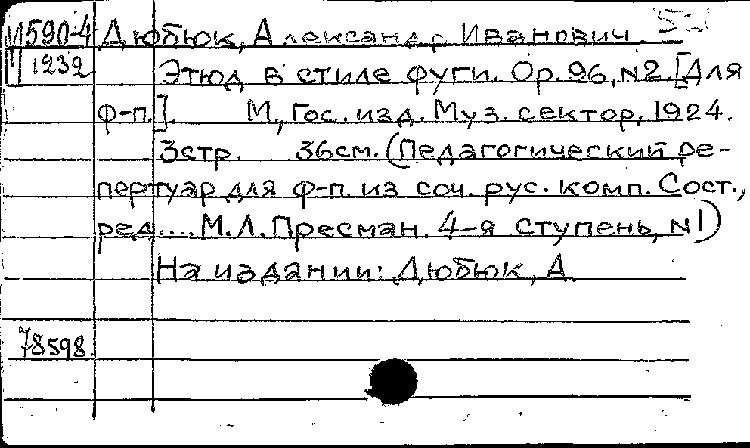 М590-4 Дюбюк, Александр Иванович.
1232 Этюд в стиле фуги. Op. 96, N2. [Для
ф-п.]. М, Гос. изд. Муз. сектор, 1924.
3стр. 36см. (Педагогический ре-
пертуар для ф-п. из соч. рус. комп. Сост.,
ред.... М.Л. Пресман. 4-я ступень, N1)
На издании: Дюбюк, А.
78598